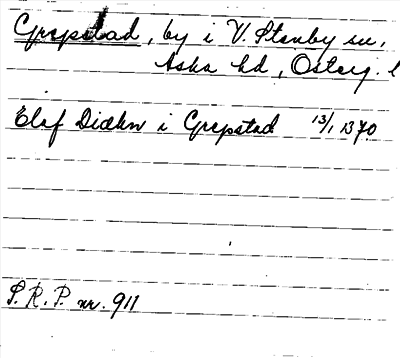 Grepstad, by i V. Stenby sn,
Aska hd, Österg. l
Elof Diækn i Grepstad 13/1 1370
S.R.P. nr. 911